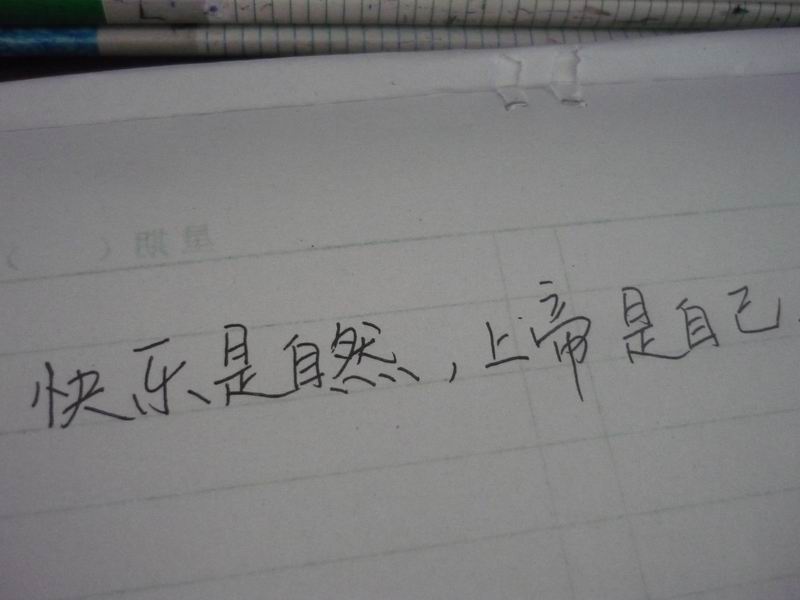 星期（ ）
快乐是自然，上帝是自己.